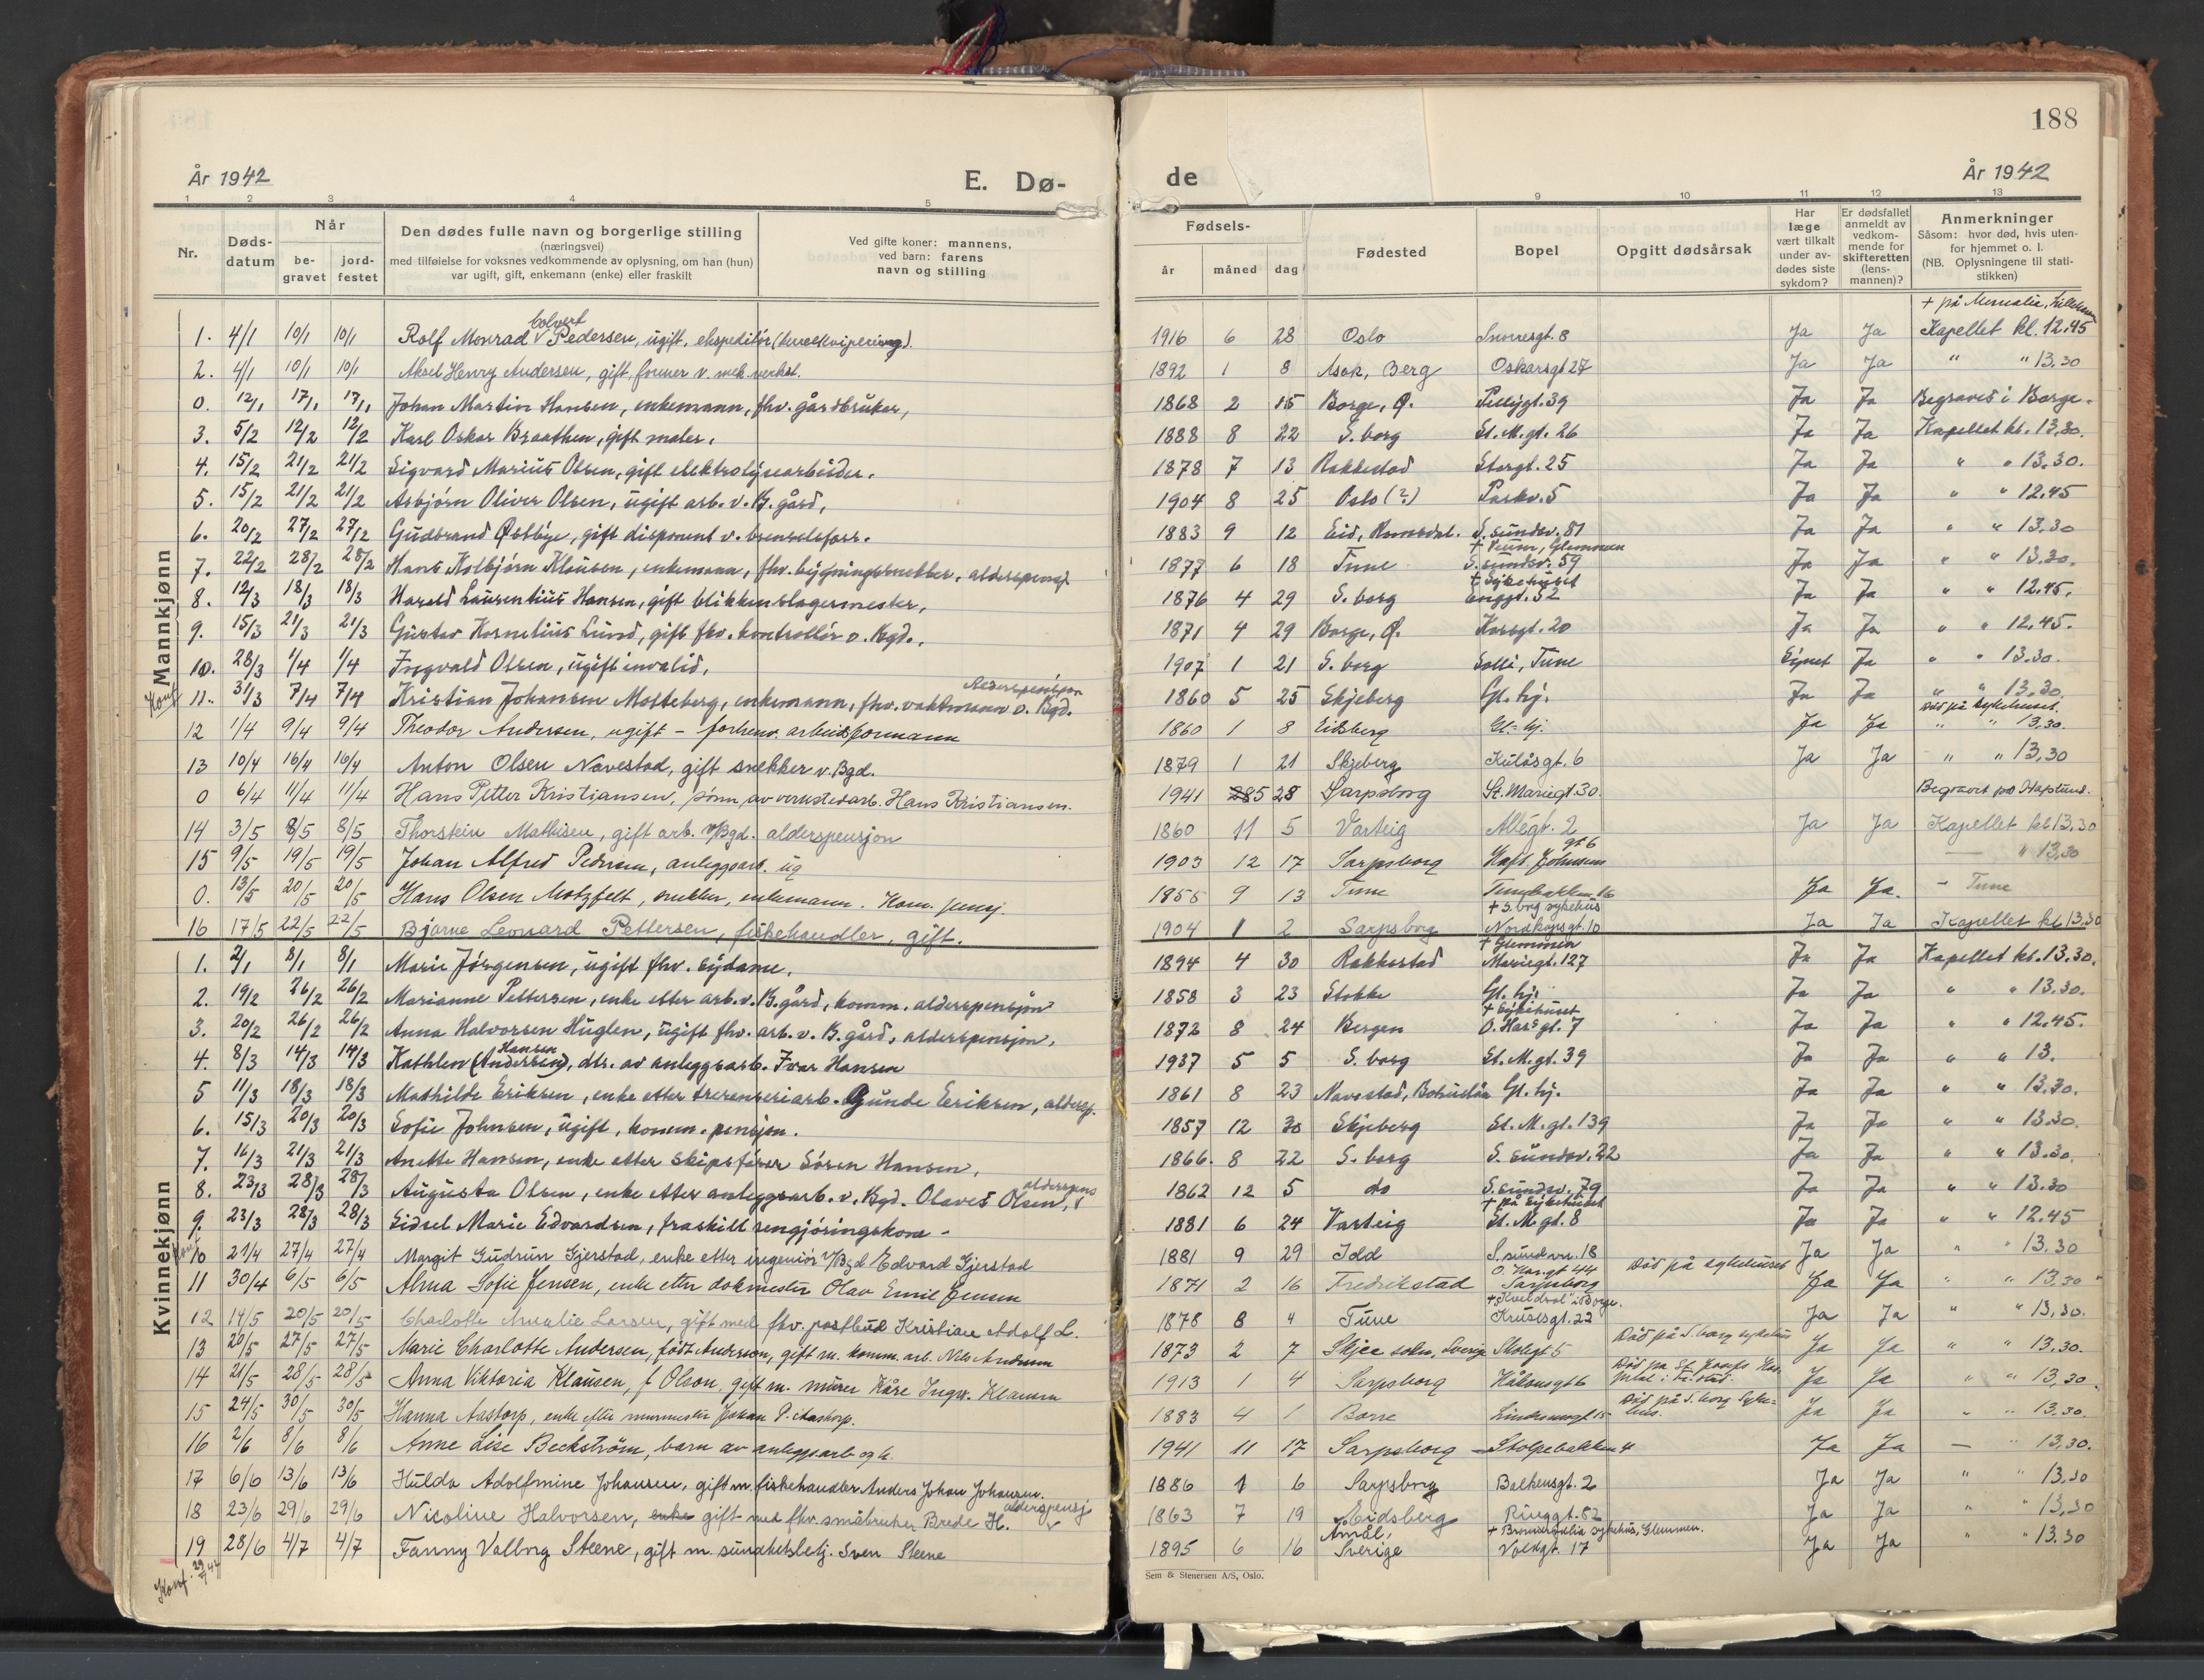 188
År 1942
E. Dø-
de
År 1942
1 2 3 4 5 9 10 11 12 13
Nr.
Døds-
datum
Når
be-
gravet
jord-
festet
Den dødes fulle navn og borgerlige stilling
(næringsvei)
med tilføielse for voksnes vedkommende av oplysning, om han (hun)
var ugift, gift, enkemann (enke) eller fraskilt
Ved gifte koner: mannens,
ved barn: farens
navn og stilling
Fødsels-
år måned dag
Fødested
Bopel
Opgitt dødsårsak
Har
læge
vært tilkalt
under av-
dødes siste
sykdom?
Er dødsfallet
anmeldt av
vedkom-
mende for
skifteretten
(lens-
mannen)?
Anmerkninger
Såsom: hvor død, hvis uten-
for hjemmet o. l.
(NB. Oplysningene til stati-
stikken)
Mannkjønn
+ på
1. 4/1 10/1 10/1 Rolf Monrad Colvert Pedersen, ugift, ekspeditør 1916 6 28 Oslo Snorresgt. 8 Ja Ja Kapellet kl. 12.45
2. 4/1 10/1 10/1 Aksel Henry Andersen, gift, former v. mek. verkst. 1892 1 8 Asak, Berg Oskarsgt 27 Ja Ja " " 13.30
0. 12/1 17/1 17/1 Johan Martin Hansen, enkemann, fhv. gårdbruker, 1868 2 15 Borge, Ø. 39 Ja Ja Begravet i Borge.
3. 5/2 12/2 12/2 Karl Oskar Braathen, gift maler. 1888 8 22 S. borg St. M. gt. 26 Ja Ja Kapellet kl. 13.30.
4. 15/2 21/2 21/2 Sigvard Marius Olsen, gift elektrolysearbeider. 1878 7 13 Rakkestad Storgt. 25 Ja Ja " " 13.30.
5. 15/2 21/2 21/2 Asbjørn Oliver Olsen, ugift arb. v. B. gård, 1904 8 25 Oslo (?) Parkv. 5 Ja Ja " " 12.45
6. 20/2 27/2 27/2 Gudbrand Østbye, gift disponent v. brenselsforr. 1883 9 12 Eid, Romsdal. S. sundsv. 81 Ja Ja " " 13.30
+ Veum, Glemmen
7. 22/2 28/2 28/2 Hans Kolbjørn Klausen, enkemann, fhv. bygningssnekker, alderspensj 1877 6 18 Tune S. sundsv. 59 Ja Ja " " 13.30.
+ Sykehuset
8. 12/3 18/3 18/3 Harald Laurentius Hansen, gift blikkenslagermester, 1876 4 29 S. borg Enggt. 52 Ja Ja " " 12.45.
9. 15/3 21/3 21/3 Gustav Kornelius Lund, gift fhv. kontrollør v. Bgd. 1871 4 29 Borge, Ø. Korsgt. 20 Ja Ja " " 12.45.
10. 28/3 1/4 1/4 Ingvald Olsen, ugift invalid, 1907 1 21 S. borg Solli, Tune Synet Ja " " 13.30.
Konf 11. 31/3 7/4 7/4 Kristian Johansen Molteberg, enkemann, fhv. vaktmann v. Bgd. Alderspensjon 1860 5 25 Skjeberg Gl. hj. Ja Ja " " 13.30.
Død på sykehuset.
12 1/4 9/4 9/4 Theodor Andersen, ugift - forhenv. arbeidsformann 1860 1 8 Eidsberg Gl. hj. Ja Ja " " 13.30.
13 10/4 16/4 16/4 Anton Olsen Navestad, gift snekker v. Bgd. 1879 1 21 Skjeberg Kulåsgt. 6 Ja Ja " " 13,30
0 6/4 11/4 11/4 Hans Petter Kristiansen, sønn av verkstedarb. Hans Kristiansen. 1941 5 28 Sarpsborg St. Mariegt. 30. Begravet på Hafslund.
14 3/5 8/5 8/5 Thorstein Mathisen, gift arb. v/Bgd. alderspensjon 1860 11 5 Varteig Allégt. 2 Ja Ja Kapellet kl 13,30
15 9/5 19/5 19/5 Johan Alfred Pedersen, anleggsarb. ug 1903 12 17 Sarpsborg Haft. Johnsens gt 6 — " 13,30
0. 13/5 20/5 20/5 Hans Olsen Motzfelt, snekker, enkemann. Kom. pensj. 1855 9 13 Tune Tunebakken 16 Ja Ja. - Tune
+ S. borg sykehus
16 17/5 22/5 22/5 Bjarne Leonard Pettersen, fiskehandler, gift. 1904 1 2 Sarpsborg Nordkapsgt. 10 Ja Ja Kapellet kl 13.30
Kvinnekjønn
+ Glemmen
1. 2/1 8/1 8/1 Marie Jørgensen, ugift fhv. sydame. 1894 4 30 Rakkestad Mariegt. 127 Ja Ja Kapellet kl. 13.30.
2. 19/2 26/2 26/2 Marianne Pettersen, enke etter arb. v. B. gård, komm. alderspensjon 1858 3 23 Stokke Gl. hj. Ja Ja " " 13.30.
+ Sykehuset
3. 20/2 26/2 26/2 Anna Halvorsen Huglen, ugift fhv. arb. v. B. gård, alderspensjon. 1872 8 24 Bergen O. Har⁵ gt. 7 Ja Ja " " 12.45.
4. 8/3 14/3 14/3 Kathlen (Andersen) Hansen, dtr. av anleggsarb. Ivar Hansen 1937 5 5 S. borg St. M. gt. 39 Ja Ja " " 13.
5 11/3 18/3 18/3 Mathilde Eriksen, enke etter Gunde Eriksen, aldersp. 1861 8 23 Navestad, Bohuslän Gl. hj. Ja Ja " " 13.30.
6. 15/3 20/3 20/3 Sofie Johnsen, ugift, komm. pensjon. 1857 12 30 Skjeberg St. M. gt. 139 Ja Ja " " 13.30.
7. 16/3 21/3 21/3 Anette Hansen, enke etter skipsfører Søren Hansen, 1866. 8 22 S. borg S. sundsv. 22 Ja Ja " " 13.30.
8. 23/3 28/3 28/3 Augusta Olsen, enke etter anleggsarb. v. Bgd. Olaves Olsen, alderspens 1862 12 5 do S. sundsv. 79 Ja Ja " " 13.30
+ på sykehuset
9. 23/3 28/3 28/3 Sidsel Marie Edvardsen, fraskilt rengjøringskone - 1881 6 24 Varteig St. M. gt. 8 Ja Ja " " 12.45
Konf 10 21/4 27/4 27/4 Margit Gudrun Gjerstad, enke etter ingeniør v/Bgd Edvard Gjerstad 1881 9 29 Idd S. sundsvn. 18 Død på sykehuset Ja Ja " " 13.30
O. Har. gt 44
11 30/4 6/5 6/5 Alma Sofie Jensen, enke etter dokmester Olav Emil Jensen 1871 2 16 Fredrikstad Sarpsborg Ja Ja " " 13.30
+ "Kveldsol" i Borge.
12 14/5 20/5 20/5 Charlotte Amalie Larsen, gift med fhv. postbud Kristian Adolf L. 1878 8 4 Tune Krusesgt. 22 Ja Ja " " 13.30.
13 20/5 27/5 27/5 Marie Charlotte Andersen, født Anderson, gift m. komm. arb. Nils Andersen 1873 2 7 Skjee sokn, Sverige Skolegt 5 Død på S. borg sykehus Ja Ja " " 13.30.
14 21/5 28/5 28/5 Anna Viktoria Klausen, f Olsen, gift m. murer Kåre Ingv. Klausen 1913 1 4 Sarpsborg Håkonsgt 6 Død på St. Josefs Hos-
pital i Fr.stad. Ja Ja " " 13,30
15 24/5 30/5 30/5 Hanna Aastorp, enke efter murmester Johan P. Aastorp. 1883 4 1 Borre 15 Død på S. borg Syke-
hus. Ja Ja " " 13.30.
16 2/6 8/6 8/6 Anne Lise Beckström, barn av anleggsarb 1941 11 17 Sarpsborg Stolpebakken 4 Ja Ja — " 13,30.
17 6/6 13/6 13/6 Hulda Adolfmine Johansen, gift m. fiskehandler Anders Johan Johansen. 1886 1 6 Sarpsborg Balkensgt. 2 Ja Ja " " 13,30
18 23/6 29/6 29/6 Nicoline Halvorsen, enke gift med fhv. småbruker Brede H. alderspensj 1863 7 19 Eidsberg Ringgt. 82 Ja Ja " " 13,30
+ sykehus, Glemmen.
19 28/6 4/7 4/7 Fanny Valborg Steene, gift m. sundhetsbetj. Sven Steene 1895 6 16 Åmål, Sverige Voldgt. 17 Ja Ja " " 13.30
Konf. 29/7 44
Sem & Stenersen A/S, Oslo.